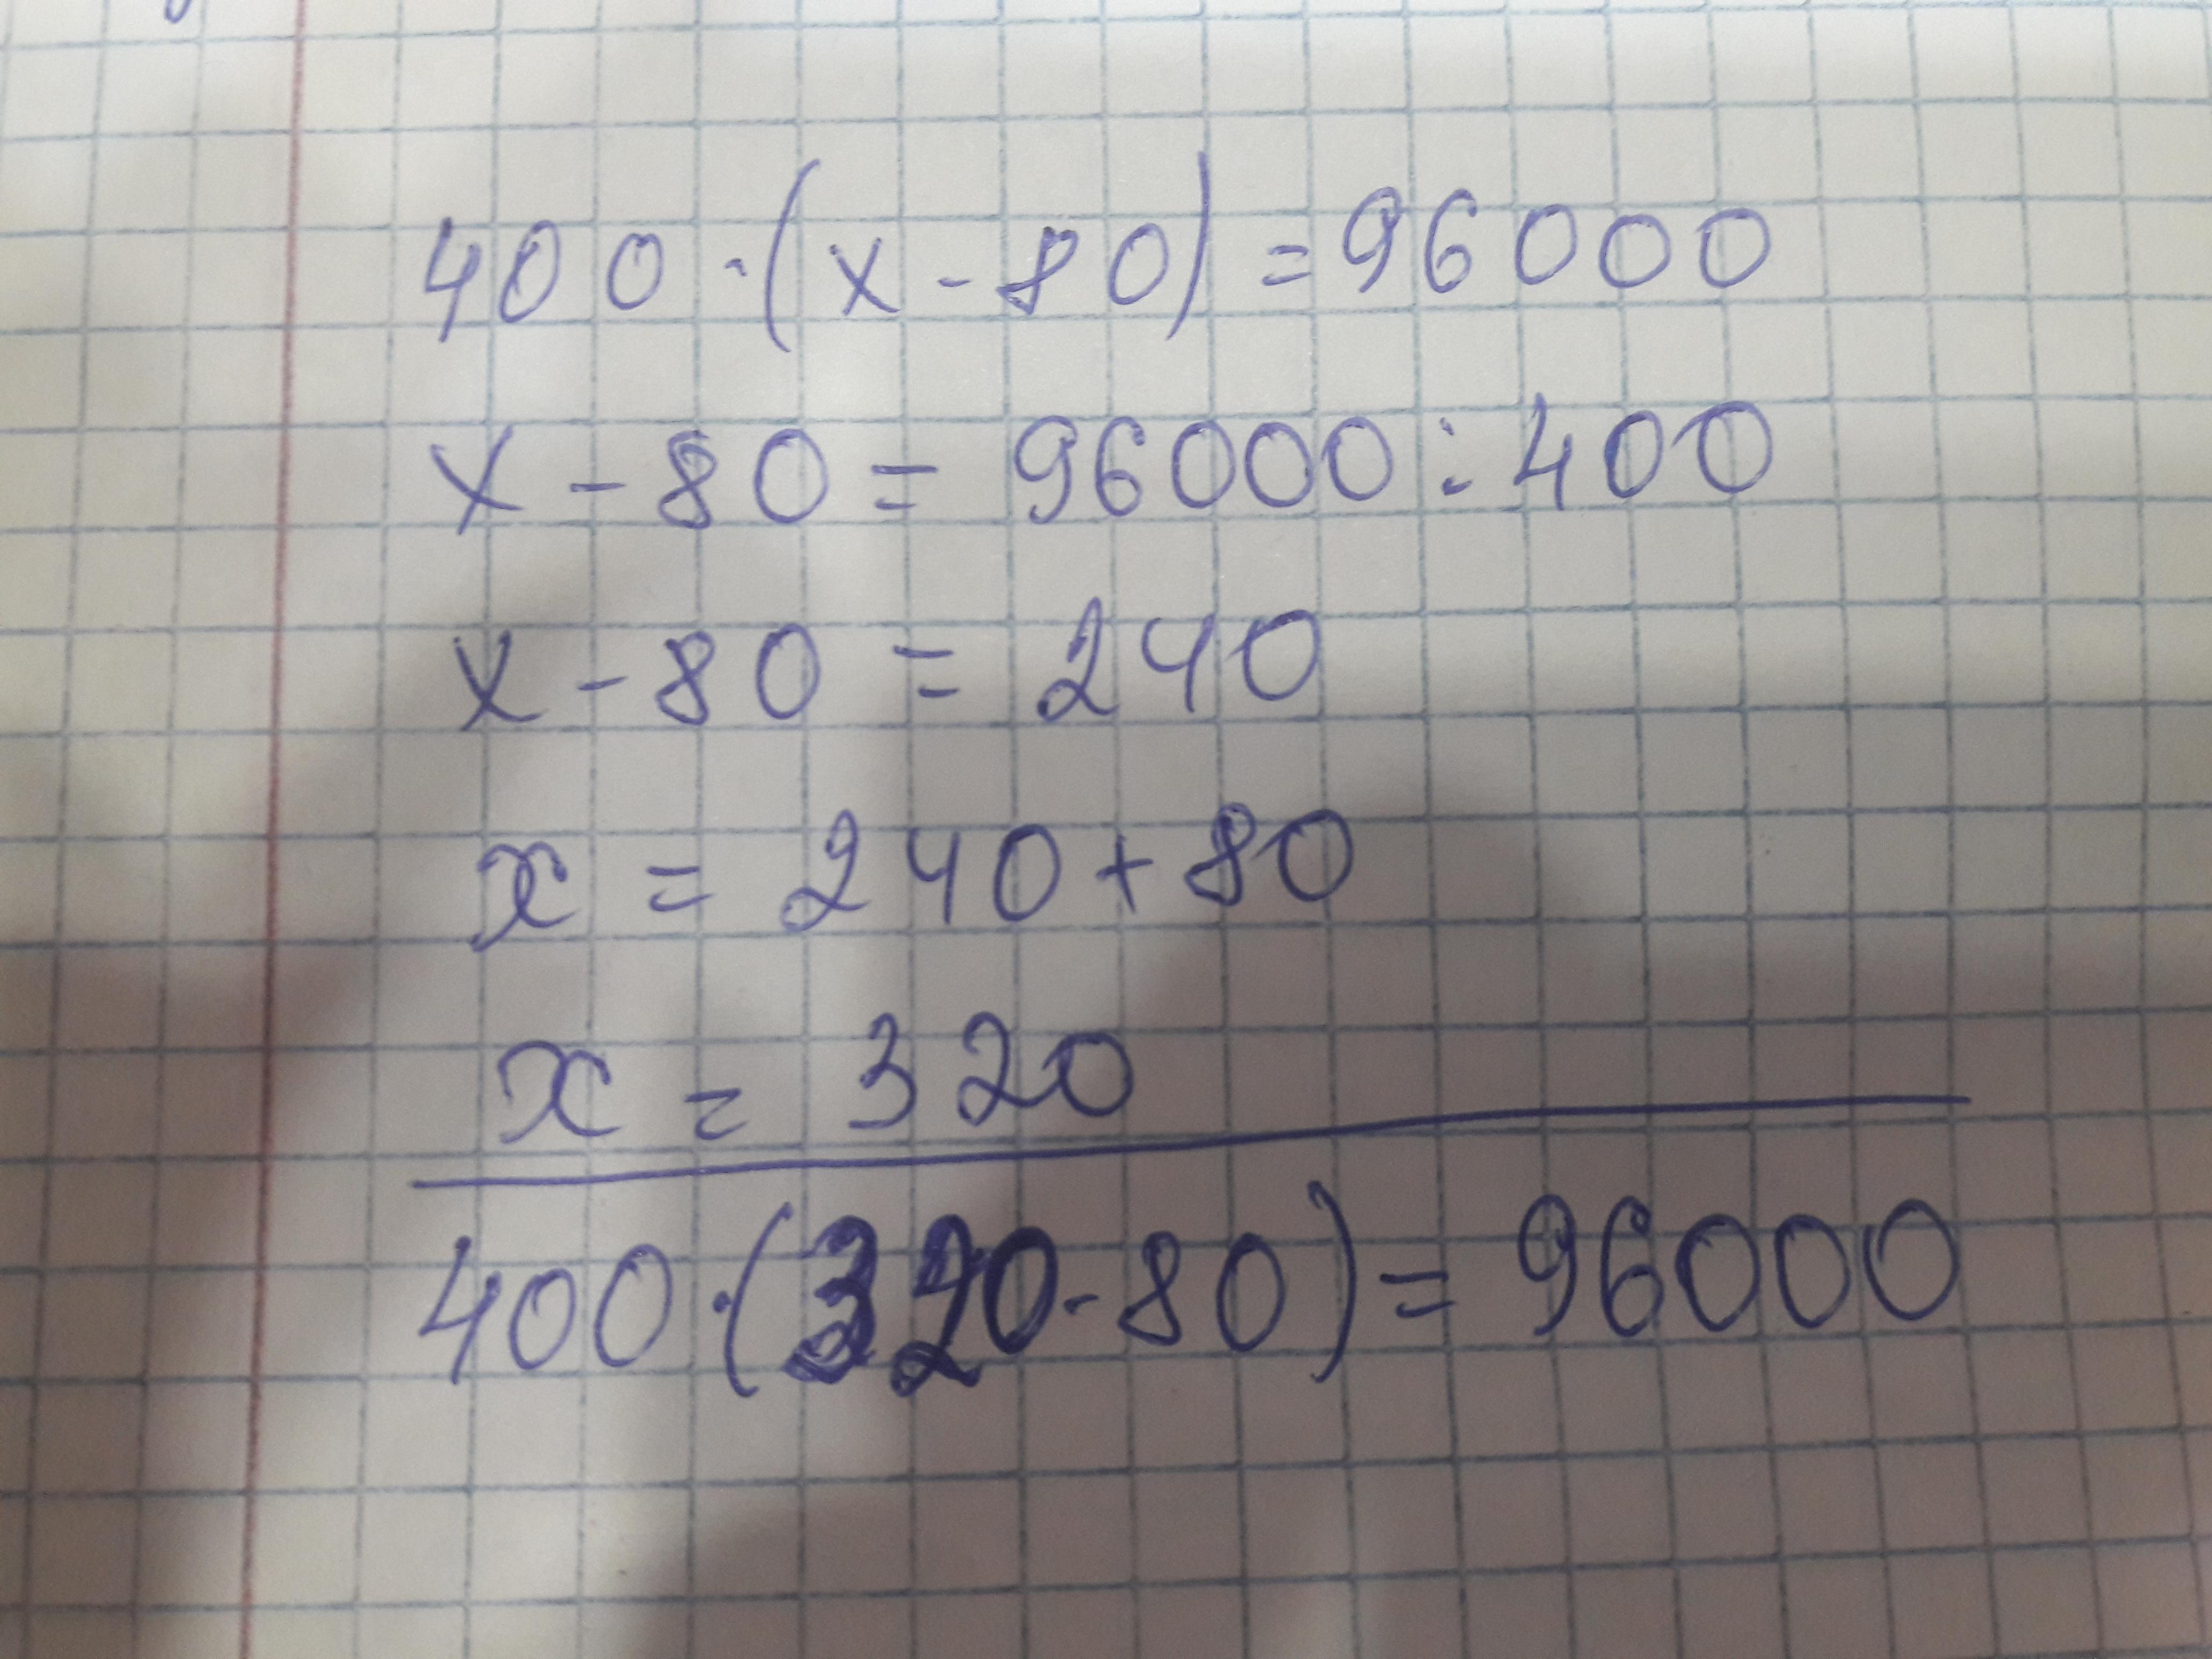 400 · (x - 80) = 96000
x - 80 = 96000 : 400
x - 80 = 240
x = 240 + 80
x = 320
400 · (320 - 80) = 96000